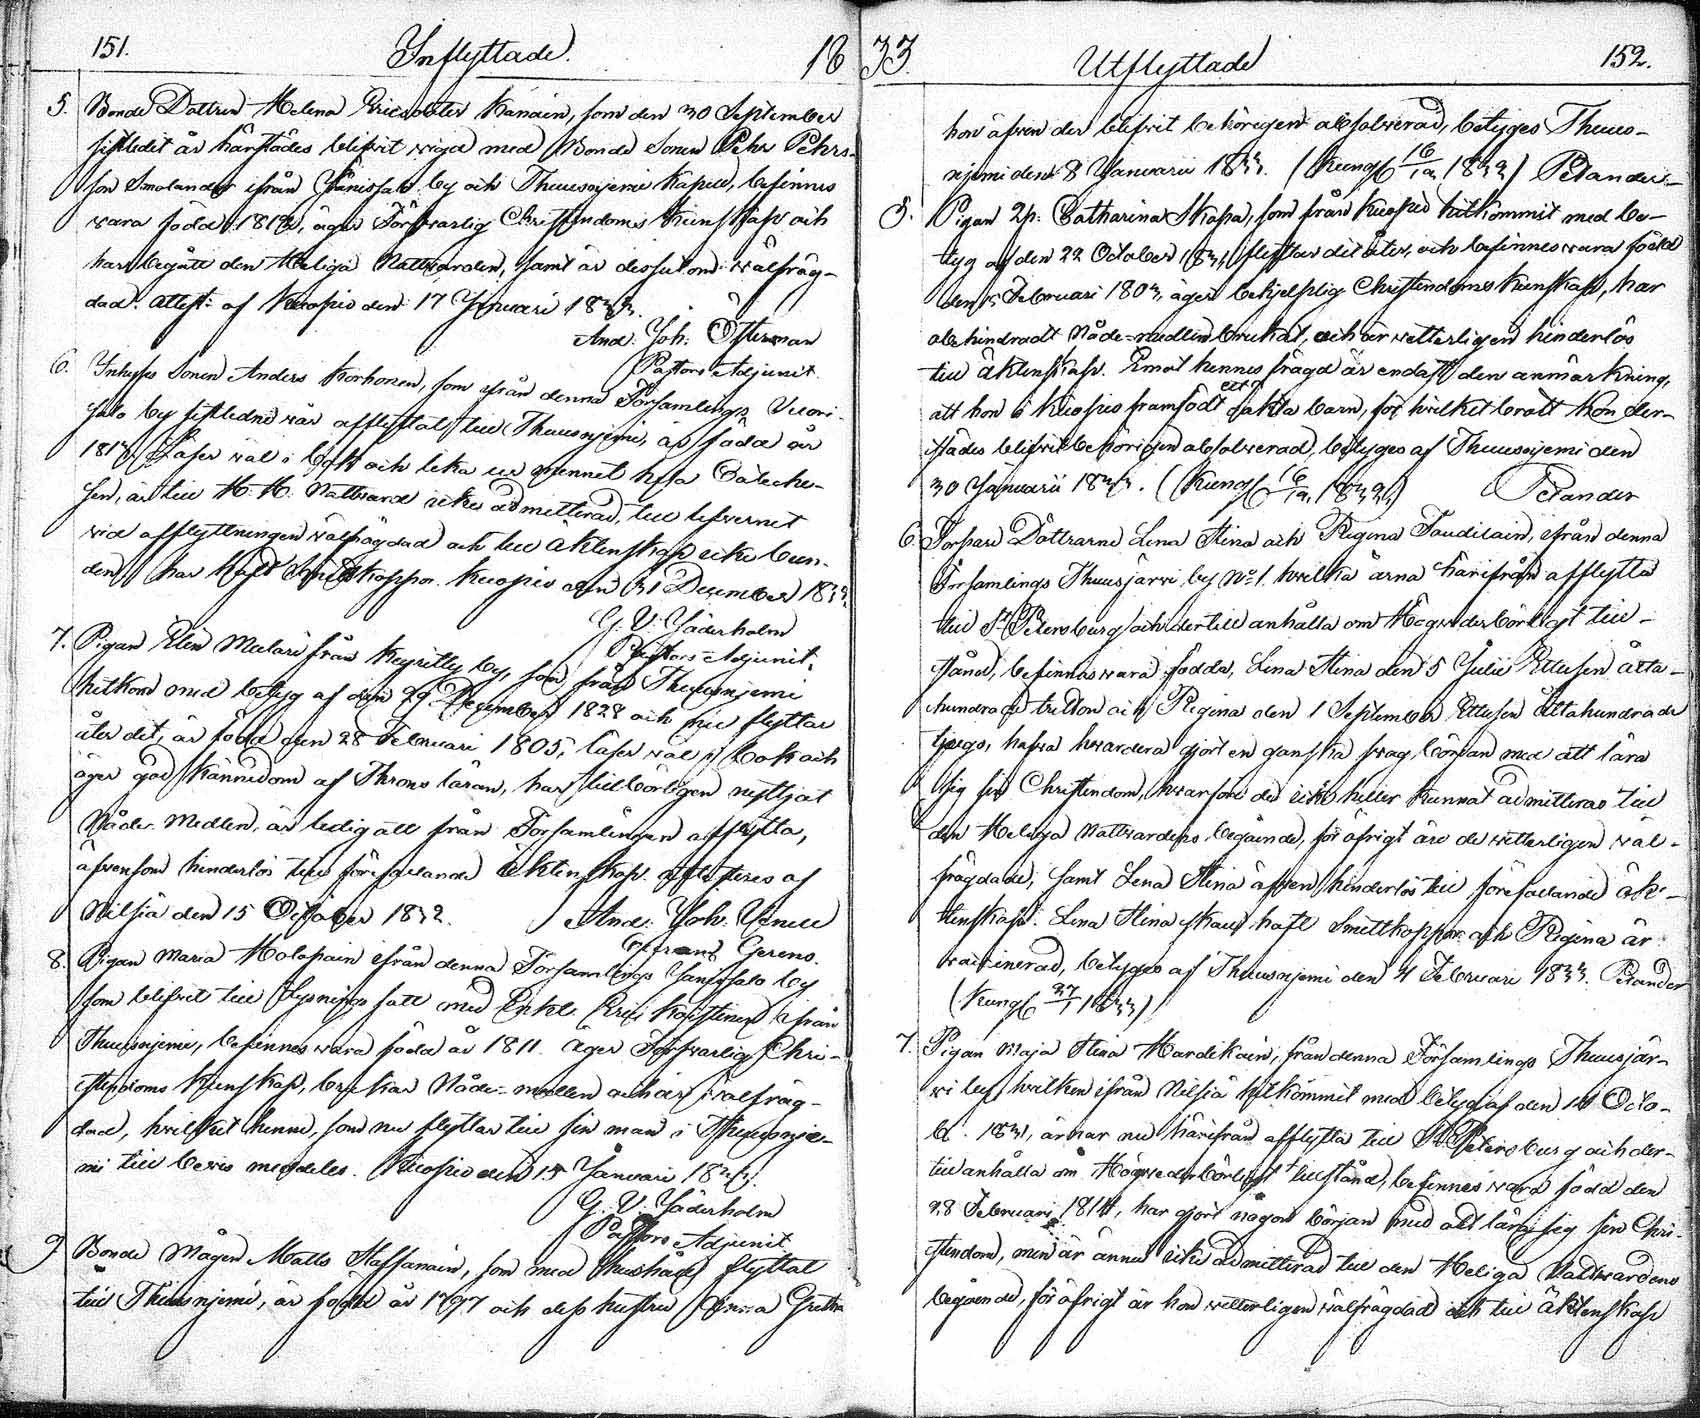 151. Inflyttade. 18
5. Bonde Dottren Helena Ericsdoter Kanain, som den 30 September
sistledit år härstädes blifvit wigd med Bonde Sonen Pehr Pehrs-
son Smolander ifrån Jänissalo by och Thuusnjemi Kapell, befinnes
wara född 181, äger Förswarlig Christendoms Kunskap och
har begått den Heliga Nattvarden, samt är dessutom wälfräg-
dad. Attest: af Kuopio den 17 Januari 1833.
And. Joh. Österman
Pastors Adjunct.
6. Inhyses Sonen Anders Korhonen, som ifrån denna Församlings Vuori-
salo by sistledne wår afflyttat till Thuusnjemi, är född år
181 Läser wäl i bok och lika ur minnet hela Cateche-
sen, är till H. H. Nattward icke admitterad, till lefwernet
vid afflyttningen wälfrägdad och till äktenskap icke bun-
den, har haft Smittkoppor. Kuopio den 31 December 1832.
G. V. Zäderholm
Pastors-Adjunct.
7. Pigan Elin Malari från Keyritty by, som från Thuusnjemi
hitkom med betyg af den 29 December 1828 och nu flyttar
åter dit, är född den 28 Februari 1805, läser wäl i bok och
äger god kännedom af Throns läran, har tillbörligen nyttjat
Nåde-Medlen, är ledig att från Församlingen afflytta,
äfvensom hinderlös till förefallande äktenskap. attesteres af
Nilsiä den 15 October 1832. And. Joh.
Gerens.
8. Pigan Maria Holopain ifrån denna Församlings Janissalo by
som blifvit till Lysnings satt med Enkl. Eric Koistinen ifrån
Thuusnjemi, befinnes wara född år 1811. äger Förswarlig Chri-
stendoms Kunskap, brukar Nåde-medlen och är wälfräg-
dad, hvilket henne, som nu flyttar till sin man i Thuusnje-
mi till bewis meddeles. Kuopio den 15 Januari 1833.
G. V. Zäderholm
Pastors Adjunct
9. Bonde Mågen Matts Staffanain, som med hushåll flyttat
till Thuusnjemi, är född år 1797 och dess hustru Anna Gretha
33. Utflyttade 152.
hon äfven der blifvit behörigen absolverad, betyges Thuus-
njemi den 8 Januarii 1833. (Kungs 16/12 1832) Pelander
5. Pigan Catharina Skapa, som från Kuopio hitkommit med be-
tyg af den 22 October 1831 flyttar dit åter, och befinnes wara född
den Februari 1803, äger behjelplig Christendoms Kunskap, har
obehindradt Nåde-medlen brukat, och är wetterligen hinderlös
till äktenskap. Emot hennes frägd är endast den anmärkning,
att hon i Kuopio framfödt oäkta barn, för hwilket brott hon der-
städes blifvit behörigen absolverad, betyges af Thuusnjemi den
30 Januarii 1833. (Kungs 16/12 1832) Pelander
6. Torpare Döttrarne Lena Stina och Regina Taudilain, ifrån denna
Församlings Thuusjärvi by No 1. hwilka ärna härifrån afflytta
till St Petersburg och dertill anhålla om Högvederbörligt till-
stånd, befinnas wara födda, Lena Stina den 5 Julii Ettusen åtta-
hundrade tretton och Regina den 1 September Ettusen Åttahundrade
tjugo, hafwa hwardera gjort en ganska swag början med att lära
sig sin Christendom, hwarföre de icke heller kunnat admitteras till
den Heliga Nattwardens begående, för öfrigt äre de wetterligen wäl-
frägdade, samt Lena Stina äfven hinderlös till förefallande äk-
tenskap. Lena Stina skall haft Smittkoppor och Regina är
vaccinerad, betyges af Thuusnjemi den 4 Februari 1833. Pelander
(Kungs 27/1 1833)
7. Pigan Maja Stina Hardikain, från denna Församlings Thuusjär-
wi by, hwilken ifrån Nilsiä hitkommit med betyg af den 14 Octo-
br. 1831, ärnar nu härifrån afflytta till St Petersburg och der-
till anhålla om Högvederbörligt tillstånd, befinnes wara född den
28 Februari 1814, har gjort någon början med att lära sig sin Chri-
stendom, men är ännu icke admitterad till den Heliga Nattwardens
begående, för öfrigt är hon wetterligen wälfrägdad och till Äktenskap